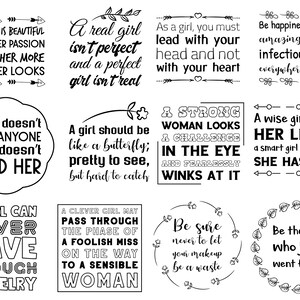 IS BEAUTIFUL
ER PASSION
HER MORE
ER LOOKS
A real girl
isn't perfect
and a perfect
girl isn't real
As a girl, you must
lead with your
head and not
with your heart
Be happiness
amazing
infectio
everywh
doesn't
ANYONE
doesn't
D HER
A girl should be
like a butterfly;
pretty to see,
but hard to catch
A STRONG
WOMAN LOOKS
A CHALLENGE
IN THE EYE
AND FEARLESSLY
WINKS AT IT
A wise gir
HER LI
a smart girl
SHE HAS
L CAN
VER
AVE
OUGH
ELRY
A CLEVER GIRL MAY
PASS THROUGH
THE PHASE OF
A FOOLISH MISS
ON THE WAY
TO A SENSIBLE
WOMAN
Be sure
never to let
your makeup
be a waste
Be the
who
went f